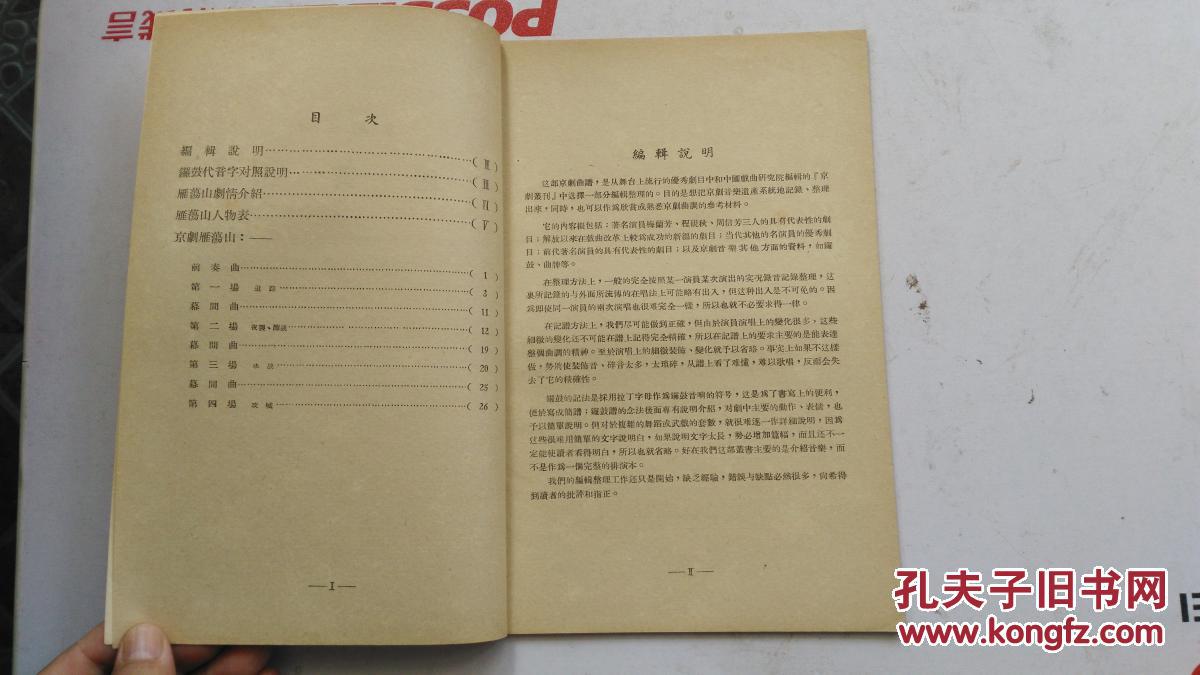 目 次
編輯說明……(Ⅱ)
鑼鼓代音字对照說明……(Ⅲ)
雁蕩山劇情介紹……(Ⅵ)
雁蕩山人物表……(Ⅴ)
京劇雁蕩山：——
前奏曲……(1)
第一場 追踪……(3)
幕間曲……(11)
第二場……(12)
幕間曲……(19)
第三場 水战……(20)
幕間曲……(25)
第四場 攻城……(26)
—Ⅰ—
編輯說明
这部京劇曲譜，是从舞台上流行的優秀劇目中和中國戲曲研究院編輯的『京
劇叢刊』中选擇一部分編輯整理的。目的是想把京劇音樂遺產系統地記錄、整理
出來，同時，也可以作爲欣賞或熟悉京劇曲調的參考材料。
它的內容擬包括：著名演員梅蘭芳、程硯秋、周信芳三人的具有代表性的劇
目；解放以來在戲曲改革上較爲成功的新編的劇目；当代其他的名演員的優秀劇
目；前代著名演員的具有代表性的劇目；以及京劇音樂其他方面的資料，如鑼
鼓、曲牌等。
在整理方法上，一般的完全按照某一演員某次演出的实况錄音記錄整理，这
裏所記錄的与外面所流傳的在唱法上可能略有出入，但这种出入是不可免的。因
爲卽使同一演員的兩次演唱也很难完全一樣，所以也就不必要求得一律。
在記譜方法上，我們尽可能做到正確，但由於演員演唱上的變化很多，这些
細微的變化还不可能在譜上記得完全精確，所以在記譜上的要求主要的是能表達
整個曲調的精神。至於演唱上的細微裝飾、變化就予以省略。事实上如果不这樣
做，勢必使裝飾音、碎音太多，太瑣碎，从譜上看了难懂，难以歌唱，反而会失
去了它的精確性。
鑼鼓的記法是採用拉丁字母作爲鑼鼓音响的符号，这是爲了書寫上的便利，
便於寫成簡譜；鑼鼓譜的念法後面專有說明介紹，对劇中主要的動作、表情，也
予以簡單說明。但对於複雜的舞蹈或武戲的套數，就很难逐一作詳細說明，因爲
这些很难用簡單的文字說明白，如果說明文字太長，勢必增加篇幅，而且还不一
定能使讀者看得明白，所以也就省略。好在我們这部叢書主要的是介紹音樂，而
不是作爲一個完整的排演本。
我們的編輯整理工作还只是開始，缺乏經驗，錯誤与缺點必然很多，尙希得
到讀者的批評和指正。
—Ⅱ—
孔夫子旧书网
www.kongfz.com